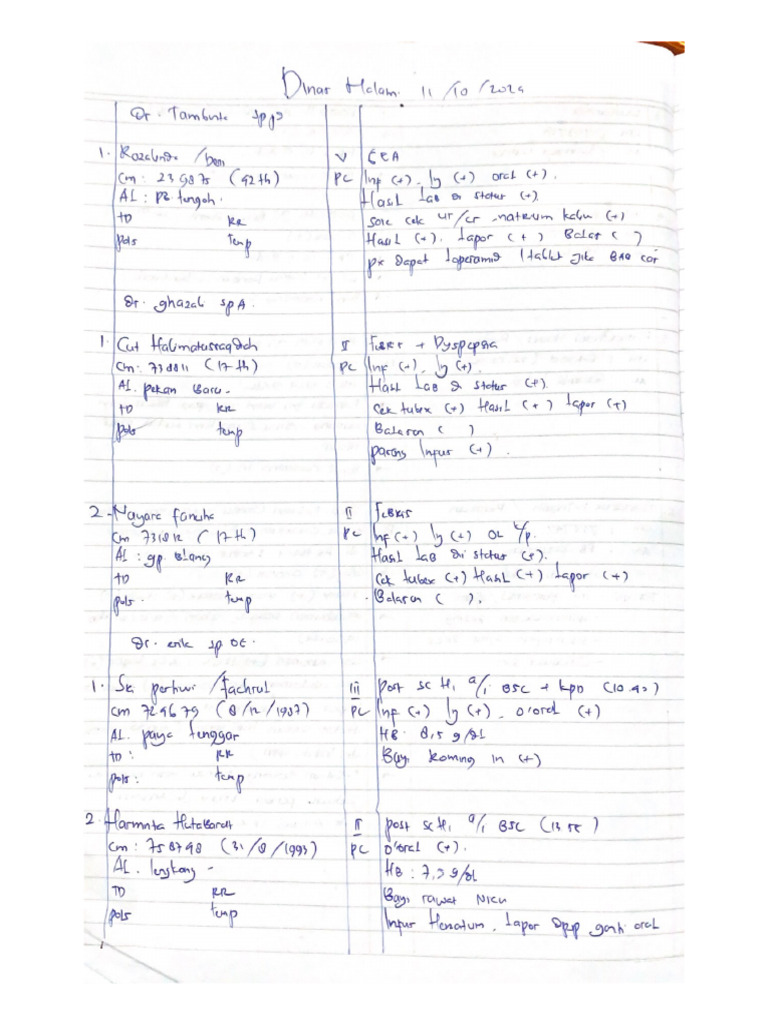 Dinas Malam 11/10/2024
Dr. Tambunta SpJP
1. Rozalinda / Deni V CRA
Cm: 239875 (42 th) PC Inf (+). Iy (+) oral (+).
Al: pe tengoh. Hasil LAB di status (+)
TD RR Sore cek ur/cr natrium kaliu (+)
pols temp Hasil (+). Lapor (+) Balas ( )
px dapat loperamid 1 tablet jika BAB cair
Dr. ghazali SpA.
1. Cut Halimatussaqdiah II Febris + Dyspepsia
Cm: 738811 (17 th) PC Inf (+). Iy (+).
Al. pekan baru - Hasil LAB di status (+)
TD RR Cek tubex (+) Hasil (+) Lapor (+)
pols temp Balasan ( )
parany Infus (+).
2. Nayara II Febris
Cm 731812 (17 th) PC Inf (+) Iy (+) OL k/p.
Al: gp. Blang Hasil LAB di status (+).
TD RR Cek tubex (+) Hasil (+) Lapor (+)
pols. temp Balasan ( ).
Dr. erik Sp OG.
1. Sri / Fachrul III post SC H1 a/i BSC + KPD (10.40)
Cm 729679 (8/12/1987) PC Inf (+) Iy (+). D'oral (+)
Al. paya tunggar HB: 8,5 g/dl
TD: RR Bayi Roming in (+)
pols: temp
2. Harmita Hutabarat II post SC H1 a/i BSC (13 55)
Cm: 758798 (31/8/1993) PC D'oral (+).
Al. lengkong - HB: 7,9 g/dl
TD RR Bayi rawat NICU
pols temp Infus Hematum. Lapor Dpjp ganti oral
1